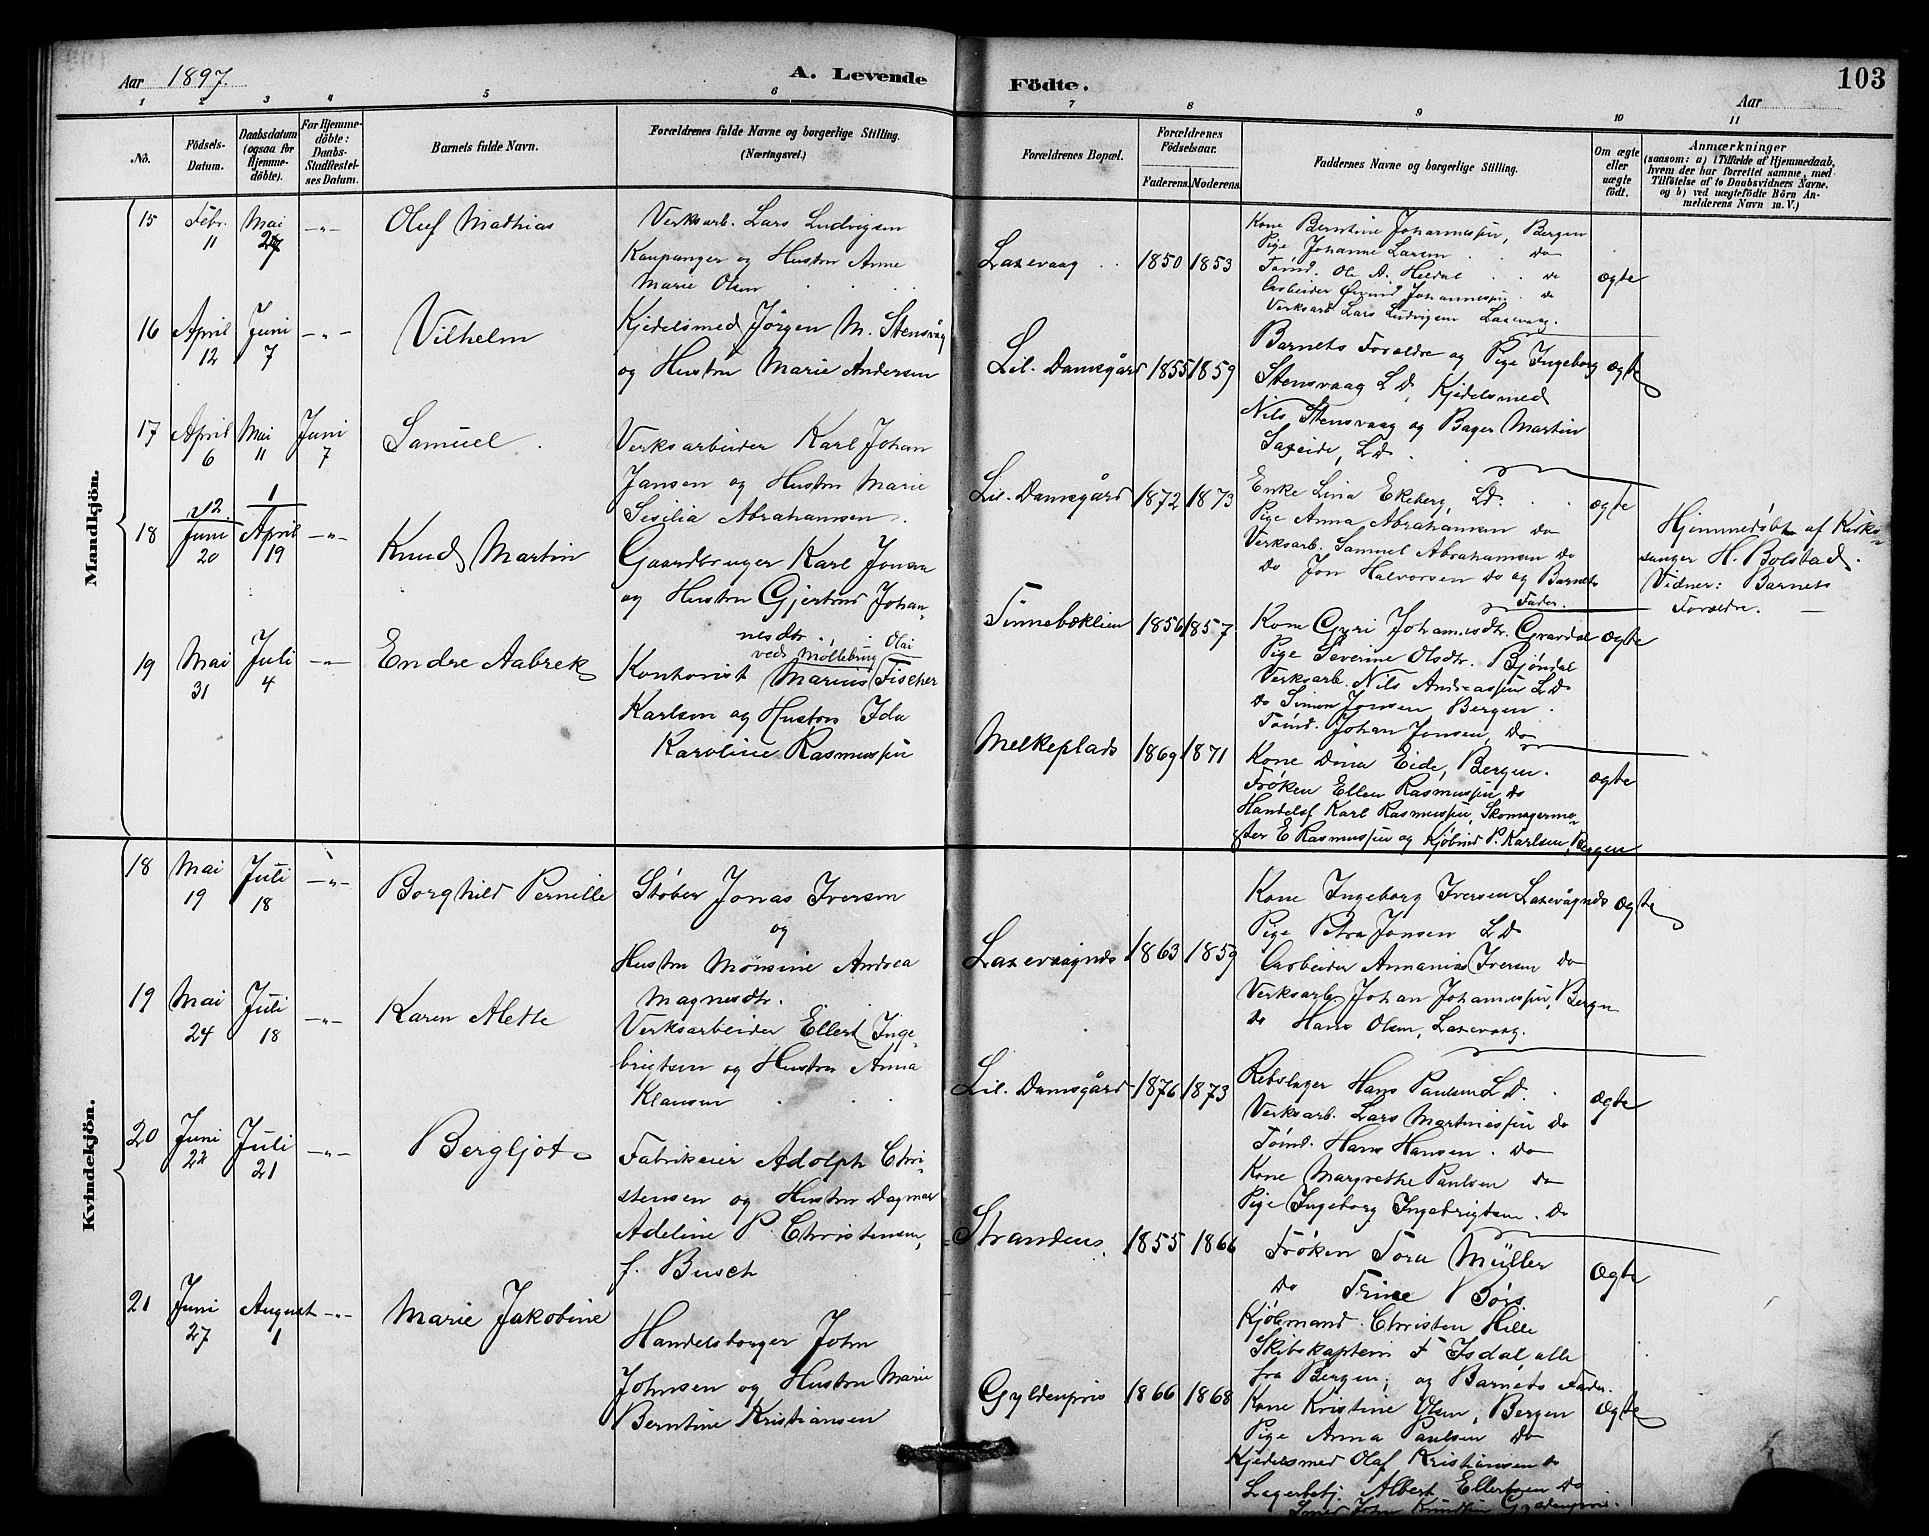 Aar 1897.
A. Levende
Födte.
Aar
103
1 2 3 4 5 6 7 8 9 10 11
No.
Födsels-
Datum.
Daabsdatum
(ogsaa for
Hjemme-
döbte).
For Hjemme-
döbte:
Daabs-
Stadfæstel-
ses Datum.
Barnets fulde Navn.
Forældrenes fulde Navne og borgerlige Stilling.
(Næringsvei.)
Forældrenes Bopæl.
Forældrenes
Födselsaar.
Faderens. Moderens.
Faddernes Navne og borgerlige Stilling.
Om ægte
eller
uægte
födt.
Anmærkninger
(saasom: a) i Tilfælde af Hjemmedaab,
hvem der har forrettet samme, med
Tilföielse af to Daabsvidners Navne,
og b) ved uægtefödte Börn An-
melderens Navn m. V.)
Mandkjön.
15
Febr.
11
Mai
27
-"-
Oluf Mathias
Verksarb. Lars Ludvigsen
Kaupanger og Hustru Anne
Marie Olsen
Laxevaag
1850 1853
Kone Berntine Johannessen, Bergen
Pige Johanne Larsen do
Tømd. Ole A. Heldal do
Arbeider Øivind Johannessen do
Verksarb Lars Ludvigsen Laxevaag.
ægte
16
April
12
Juni
7
-"-
Vilhelm
Kjedelsmed Jörgen M. Stensvåg
og Hustru Marie Andersen
Lil. Damsgård
1855 1859
Barnets Foraldre og Pige Ingeborg
Stensvaag L.D, Kjedelsmed
Nils Stensvaag og Bager Martin
Saxeide, L.D.
ægte
17
April
6
Mai
11
Juni
7
Samuel
Verksarbeider Karl Johan
Jansen og Hustru Marie
Sesilia Abrahamsen.
Lil. Damsgård
1872 1873
Enke Lina Ekeberg, L.D.
Pige Anna Abrahamsen do
Verksarb. Samuel Abrahamsen do
do Jon Halvorsen do og Barnets
Fader.
ægte
Hjemmedøbt af Kirke-
sanger H. Bolstad.
Vidner: Barnets
Foraldre.
18
12
Juni
20
1
April
19
-"-
Knud Martin
Gaardbruger Karl Jonsen
og Hustru Gjertrud Johan-
nesdtr.
Tennebeklien
1856 1857
Kone Guri Johannesdtr. Gravdal
Pige Severine Olsdtr. Bjöndal
Verksarb. Nils Andreassen L.D
do Simon Jonsen Bergen
Tømd. Johan Jonsen, do
ægte
19
Mai
31
Juli
4
-"-
Endre Aabrek
ved Møllebrug Olai
Kontorist Marius Fischer
Karlsen og Hustru Ida
Karoline Rasmussen
Melkeplads
1869 1871
Kone Dina Eide, Bergen.
Frøken Ellen Rasmussen, do
Handelsf Karl Rasmussen, Skomagerme-
ster E Rasmussen og Kjøbmd P. Karlsen, Bergen
ægte
Kvindekjön.
18
Mai
19
Juli
18
-"-
Borghild Pernille
Støber Jonas Iversen
og
Hustru Mønsine Andrea
Magnesdtr.
Laxevaagnæs
1863 1859
Kone Ingeborg Iversen Laxevågnæs
Pige Petra Jonsen L.D
Arbeider Annanias Iversen do
Verksarb Johan Johannessen, Bergen
do Hans Olsen, Laxevaag.
ægte
19
Mai
24
Juli
18
-"-
Karen Alette
Verksarbeider Ellert Inge-
brigtsen og Hustru Anna
Klausen
Lil. Damsgård
1876 1873
Rebslager Hans Paulsen L.D.
Verksarb. Lars Martinessen do
Tømd. Hans Hansen. do
Kone Margrethe Paulsen do
Pige Ingeborg Ingebrigtsen. do
ægte
20
Juni
22
Juli
21
-"-
Bergljot
Fabrikeier Adolph Chri-
stensen og Hustru Dagmar
Adeline P. Christensen,
f. Busch
Strandens
1855 1866
Frøken Tora Müller
do Trine Børs
Kjøbmand Christen Hille
Skibskaptein F Isdal, alle
fra Bergen, og Barnets Fader.
ægte
21
Juni
27
August
1
-"-
Marie Jakobine
Handelsborger John
Johnsen og Hustru Marie
Berntine Kristiansen
Gyldenpris
1866 1868
Kone Kristine Olsen, Bergen
Pige Anna Paulsen do
Kjedelsmed Olaf Kristiansen do
Lagerbetj. Albert Ellertsen do
Smed John Knudsen Gyldenpris.
ægte